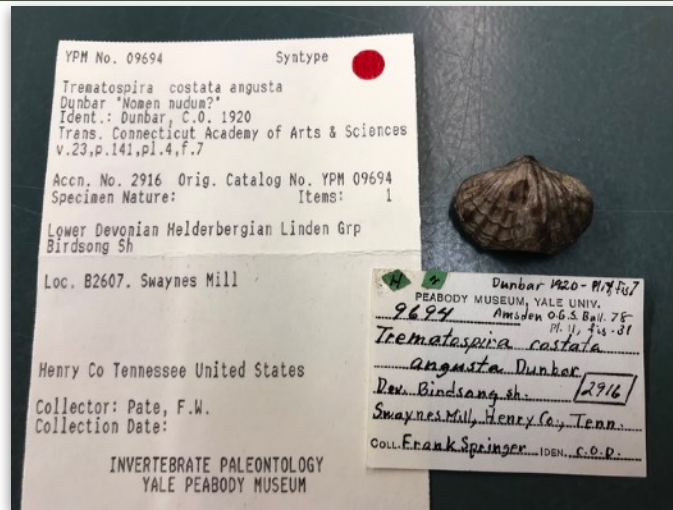 YPM No. 09694 Syntype
Trematospira costata angusta
Dunbar "Nomen nudum?"
Ident.: Dunbar, C.O. 1920
Trans. Connecticut Academy of Arts & Sciences
v.23,p.141,pl.4,f.7
Accn. No. 2916 Orig. Catalog No. YPM 09694
Specimen Nature: Items: 1
Lower Devonian Helderbergian Linden Grp
Birdsong Sh
Loc. B2607. Swaynes Mill
Henry Co Tennessee United States
Collector: Pate, F.W.
Collection Date:
INVERTEBRATE PALEONTOLOGY
YALE PEABODY MUSEUM
H
Dunbar 1920 - Pl 4, fig 7
PEABODY MUSEUM, YALE UNIV.
9694 Amsden O.G.S. Bull. 78
Pl. 11, fig. 31
Trematospira costata
angusta Dunbar
Dev. Birdsong sh. 2916
Swaynes Mill, Henry Co., Tenn.
COLL. Frank Springer IDEN. C.O.D.